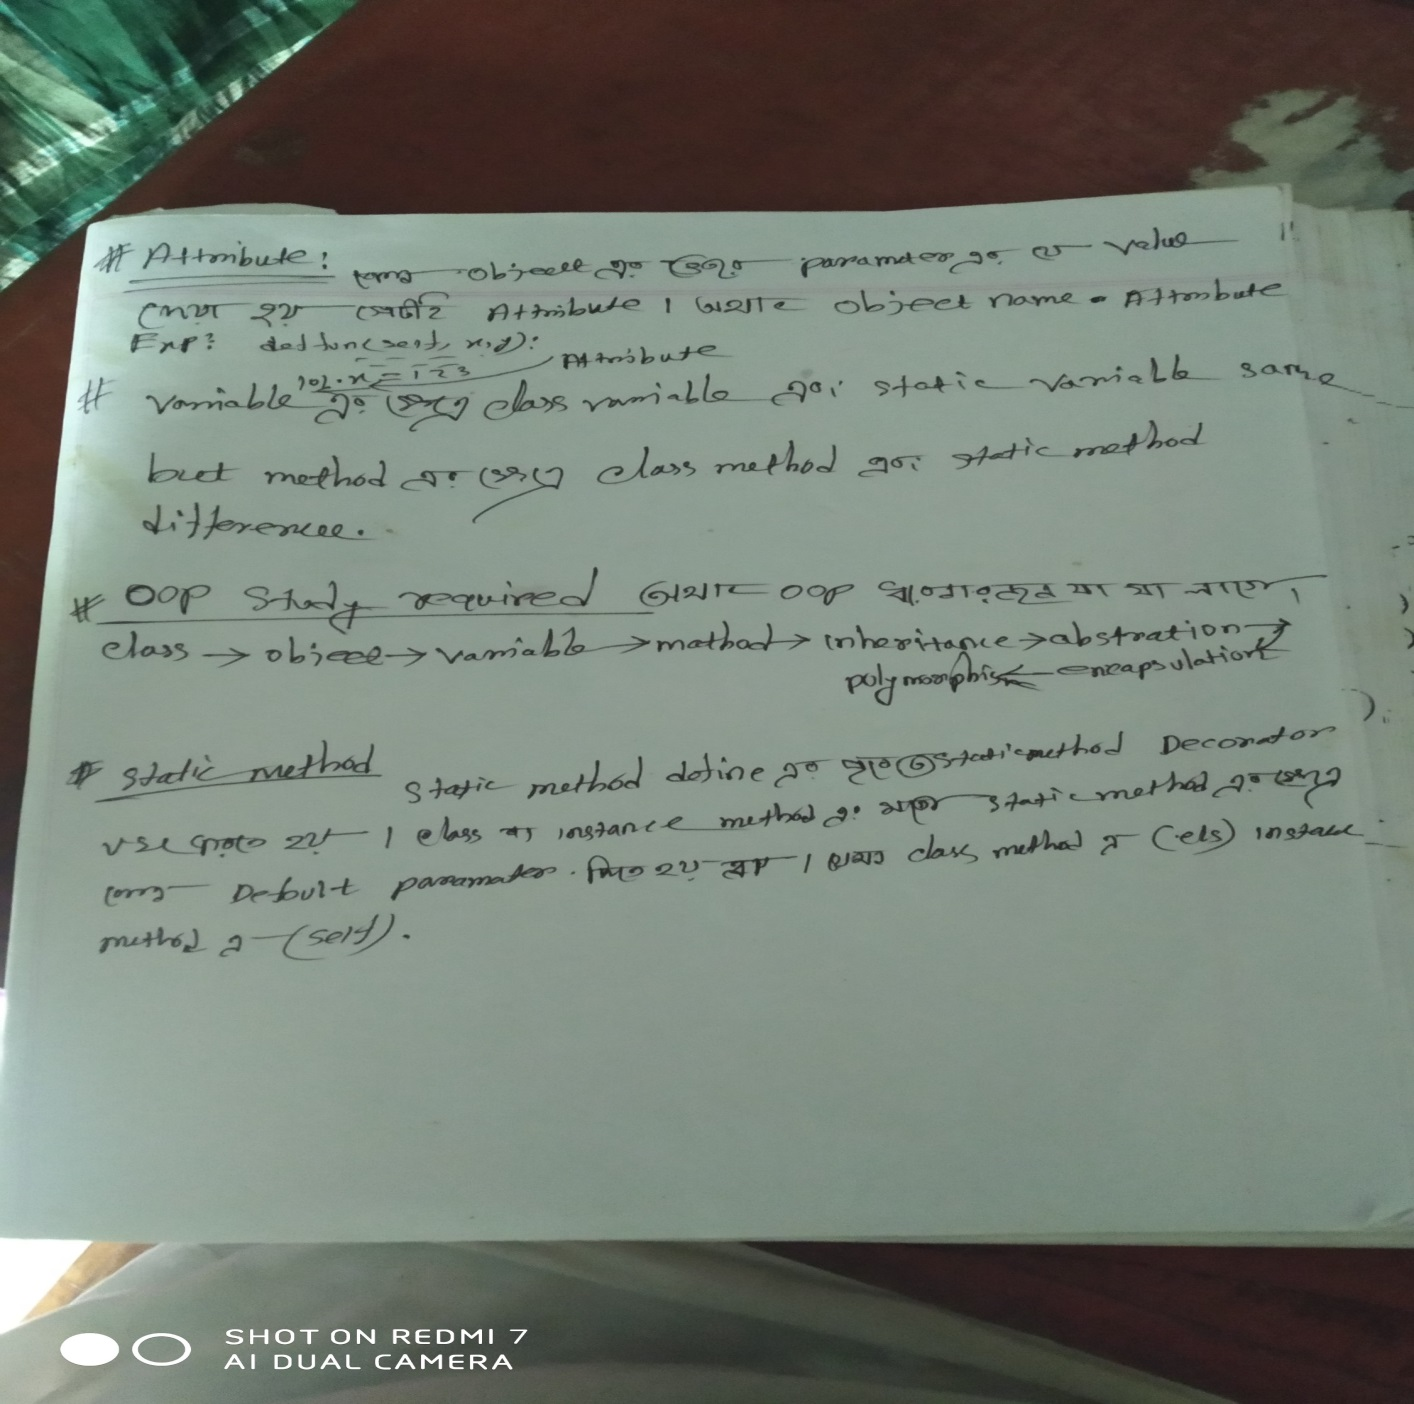 # Attribute: কোন object এর ভেতর parameter এর যে value
দেয়া হয় সেটাই Attribute । অর্থাৎ object name . Attribute
Exp: def fun(self, x,y):
101.x = 123 Attribute
# variable এর ক্ষেত্রে class variable এবং static variable same
but method এর ক্ষেত্রে class method এবং static method
difference.
# OOP Study required অর্থাৎ OOP যা যা লাগে ।
class → object → variable → mathod → inheritance → abstration →
polymorphis ← encapsulation
# Static method static method define এর পূর্বে @staticmethod Decorator
use করতে হয় । class বা instance method এর মতো static method এর ক্ষেত্রে
কোন Default paramater দিতে হয় না । class method এ (cls) instance
method এ (self).
SHOT ON REDMI 7
AI DUAL CAMERA